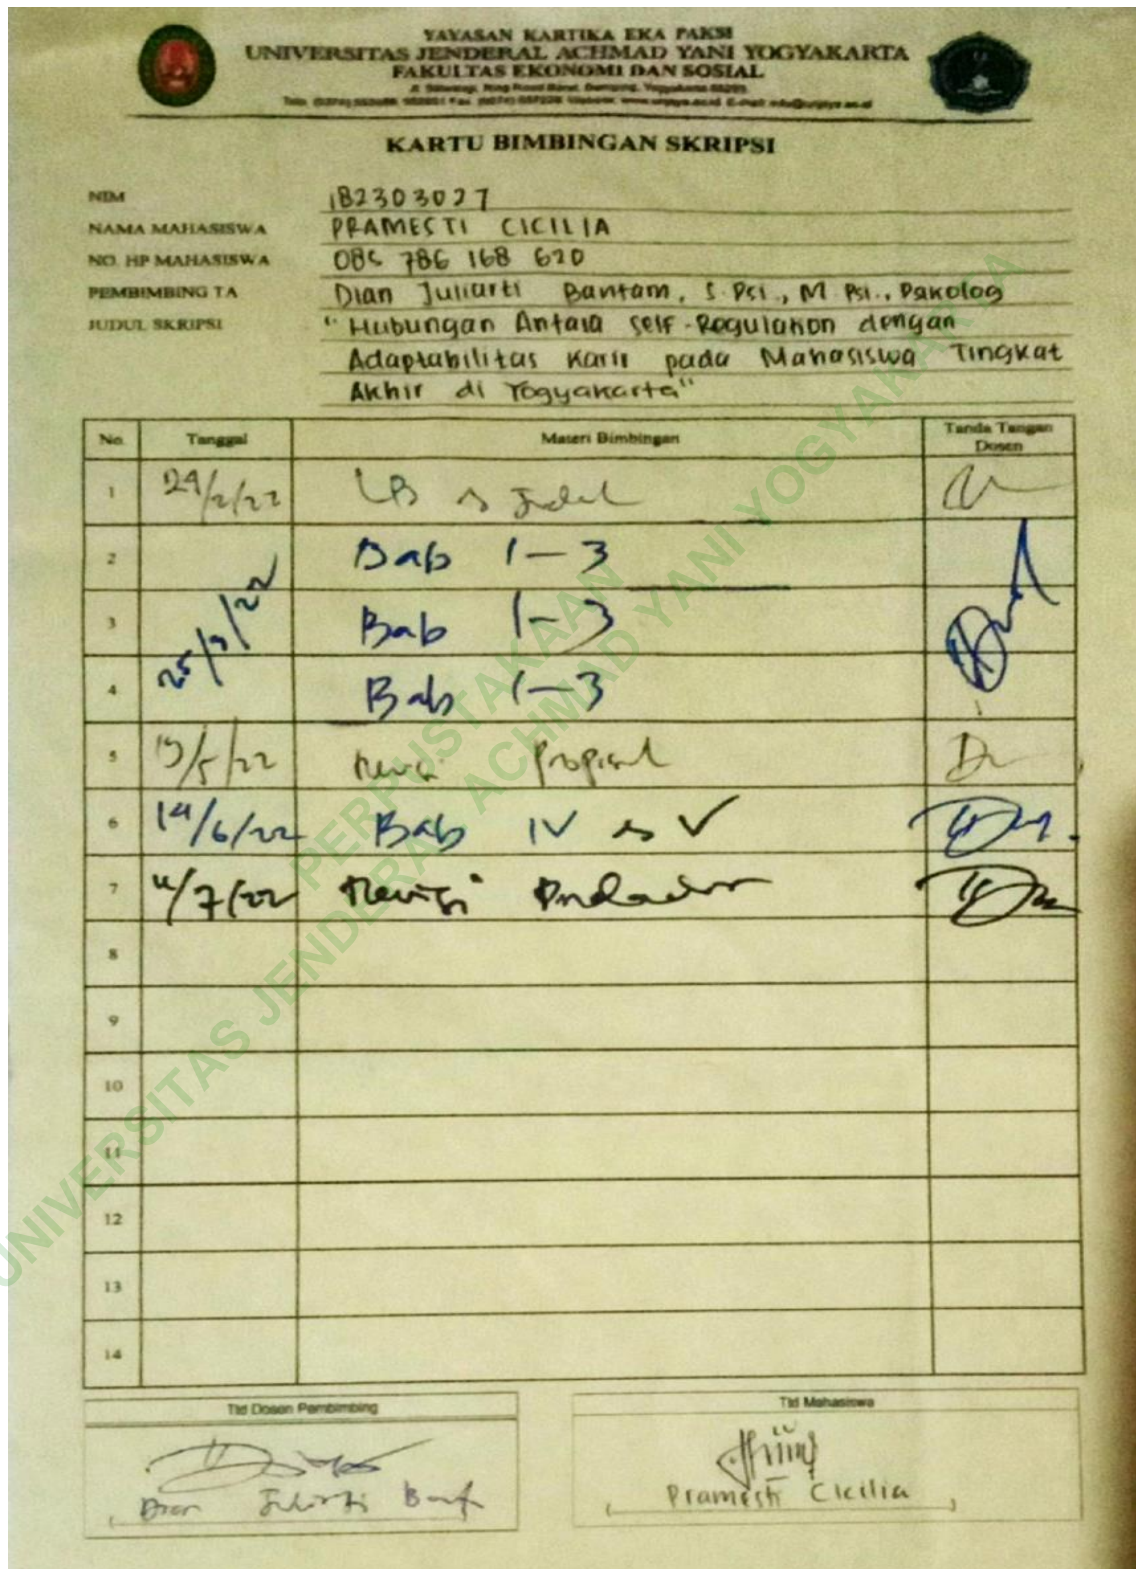 YAYASAN KARTIKA EKA PAKSI
UNIVERSITAS JENDERAL ACHMAD YANI YOGYAKARTA
FAKULTAS EKONOMI DAN SOSIAL
KARTU BIMBINGAN SKRIPSI
NIM 182303027
NAMA MAHASISWA PRAMESTI CICILIA
NO. HP MAHASISWA 085 786 168 620
PEMBIMBING TA Dian Juliarti Bantam, S.Psi., M Psi., Psikolog
JUDUL SKRIPSI "Hubungan Antara Self-Regulation dengan
Adaptabilitas Karir pada Mahasiswa Tingkat
Akhir di Yogyakarta"
No. Tanggal Materi Bimbingan Tanda Tangan
Dosen
1 24/2/22 Judul
2 Bab 1-3
3 25/3/22 Bab 1-3
4 Bab 1-3
5 /5/22 proposal
6 14/6/22 Bab IV V
7 /7/22 Revisi
8
9
10
11
12
13
14
Ttd Dosen Pembimbing Ttd Mahasiswa
Dian Juliarti Pramesti Cicilia
PERPUSTAKAAN
UNIVERSITAS JENDERAL ACHMAD YANI YOGYAKARTA